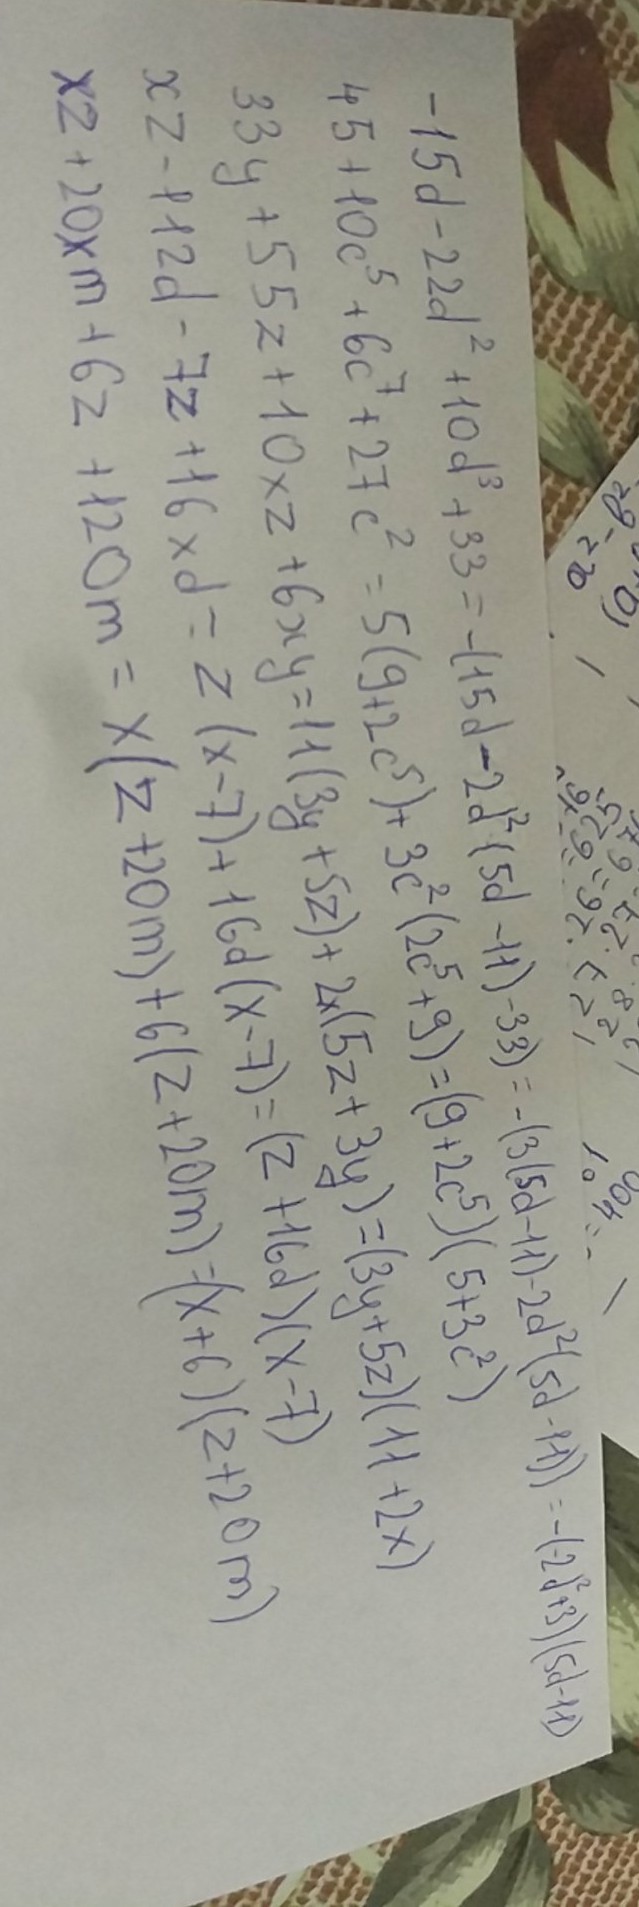 -15d-22d²+10d³+33=-(15d-2d²(5d-11)-33)=-(3(5d-11)-2d²(5d-11))=-(-2d²+3)(5d-11)
45+10c⁵+6c⁷+27c²=5(9+2c⁵)+3c²(2c⁵+9)=(9+2c⁵)(5+3c²)
33y+55z+10xz+6xy=11(3y+5z)+2x(5z+3y)=(3y+5z)(11+2x)
xz-112d-7z+16xd=z(x-7)+16d(x-7)=(z+16d)(x-7)
xz+20xm+6z+120m=x(z+20m)+6(z+20m)=(x+6)(z+20m)